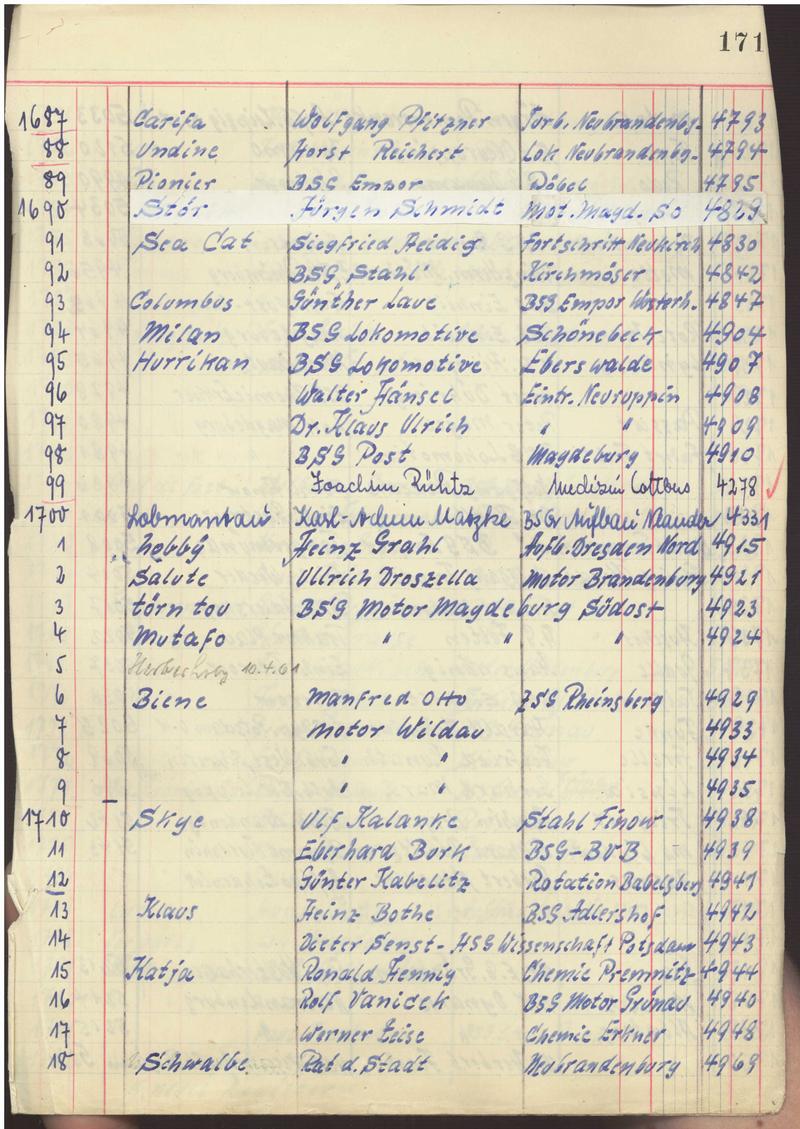 171
1687 Carifa Wolfgang Pfitzner Turb. Neubrandenbg. 4793
88 Undine Horst Reichert Lok Neubrandenbg. 4794
89 Pionier BSG Empor Döbel 4795
1690 Stör Jürgen Schmidt Mot. Magd. So 4829
91 Sea Cat Siegfried Heidig Fortschritt Neukirch 4830
92 BSG „Stahl" Kirchmöser 4842
93 Columbus Günther Laue BSG Empor Wusterh. 4847
94 Milan BSG Lokomotive Schönebeck 4904
95 Hurrikan BSG Lokomotive Eberswalde 4907
96 Walter Hänsel Eintr. Neuruppin 4908
97 Dr. Klaus Ulrich " " 4909
98 BSG Post Magdeburg 4910
99 Joachim Rühtz Medizin Cottbus 4278
1700 Karl-Armin Matzke BSG Aufbau 4331
1 hobby Heinz Grahl Aufb. Dresden Nord 4915
2 Salute Ullrich Droszella Motor Brandenburg 4921
3 törn tou BSG Motor Magdeburg Südost 4923
4 Mutafo " " " 4924
5 10.4.61
6 Biene Manfred Otto ZSG Rheinsberg 4929
7 Motor Wildau 4933
8 " " 4934
9 " " 4935
1710 Skye Ulf Kalanke Stahl Finow 4938
11 Eberhard Bork BSG-BVB 4939
12 Günter Kabelitz Rotation Babelsberg 4941
13 Klaus Heinz Bothe BSG Adlershof 4942
14 Dieter Senst - HSG Wissenschaft Potsdam 4943
15 Katja Ronald Hennig Chemie Premnitz 4944
16 Rolf Vanicek BSG Motor Grünau 4940
17 Werner Zeise Chemie Erkner 4948
18 Schwalbe Rat d. Stadt Neubrandenburg 4969